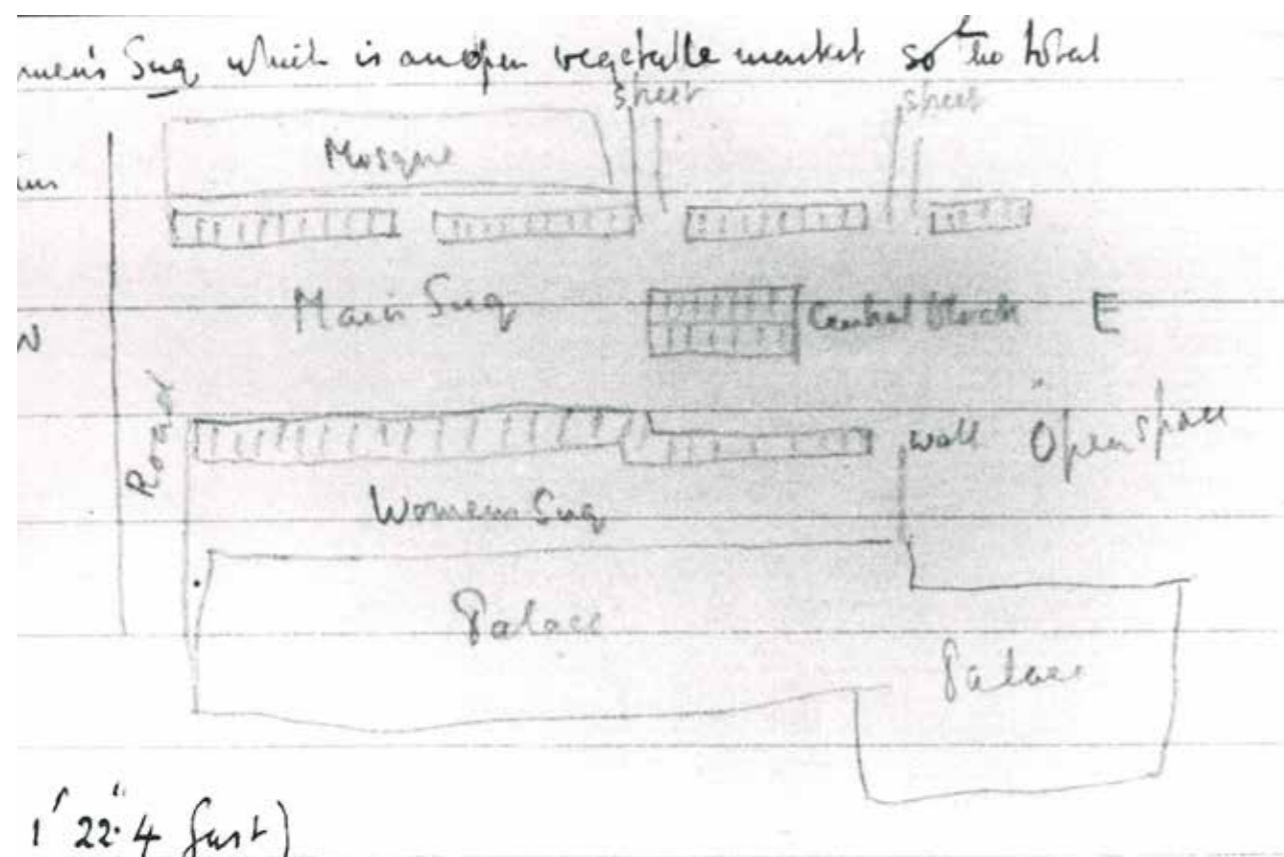 omen's Suq which is an open vegetable market so the total
street
street
Mosque
Main Suq
Central Block
E
Road
wall
Open space
Womens Suq
Palace
Palace
1' 22".4 fast)